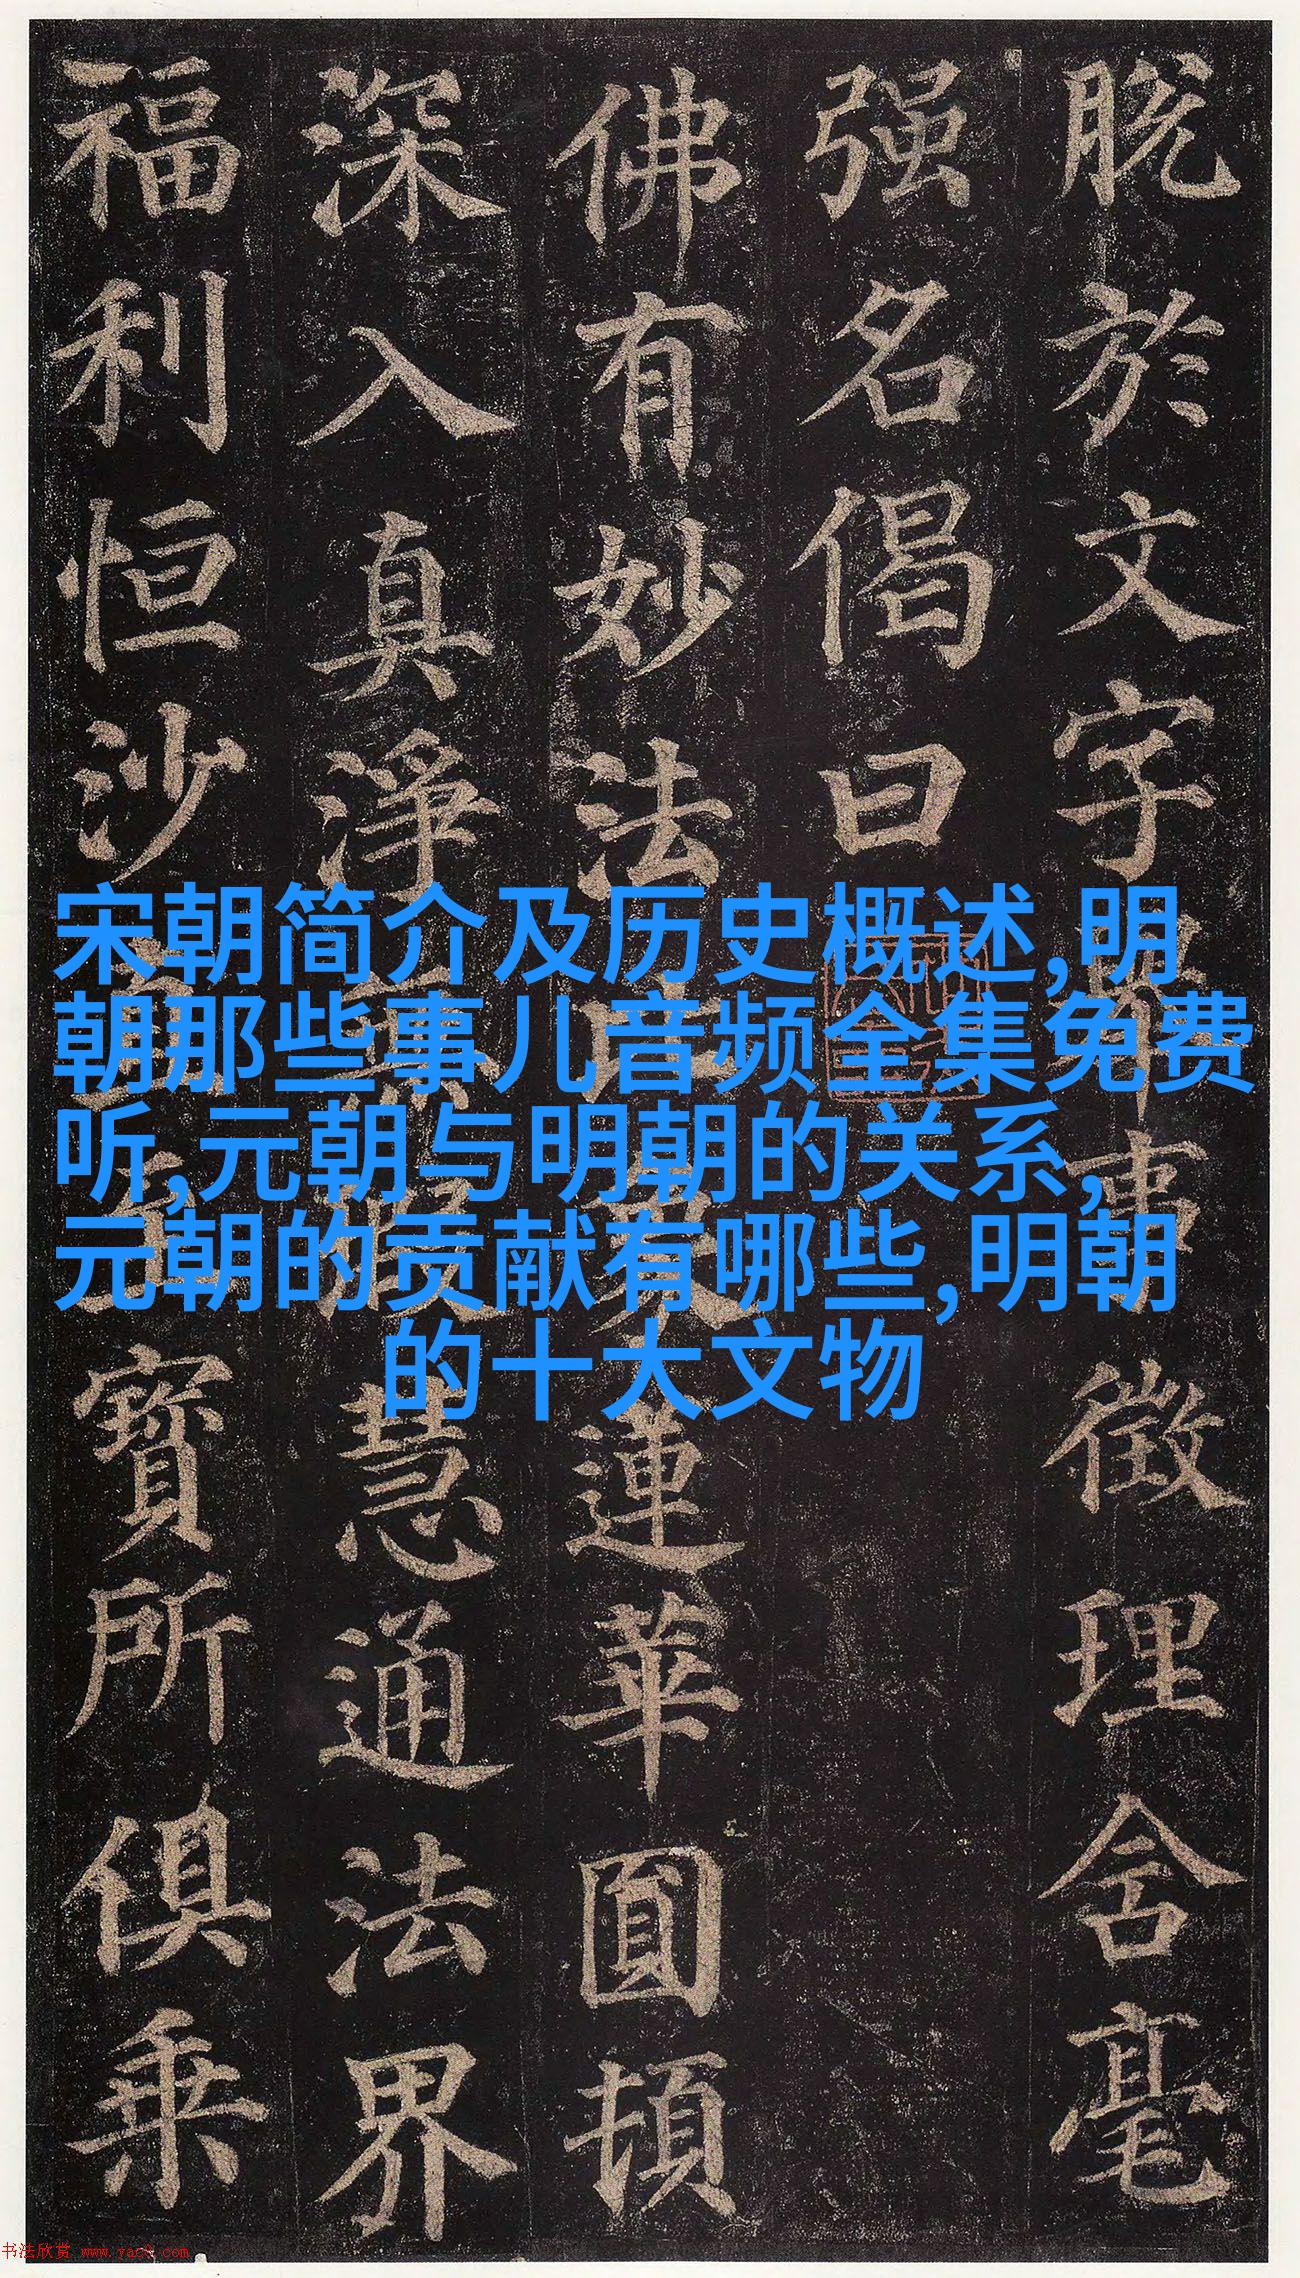 脱於文字事徵理舍毫
强名偈曰
佛有妙法蓮華圓頓
深入真淨慧通法界
福利恒沙寶所俱乘
宋朝简介及历史概述,明
朝那些事儿音频全集免费
听,元朝与明朝的关系,
元朝的贡献有哪些,明朝
的十大文物
书法欣赏 www.yac8.com